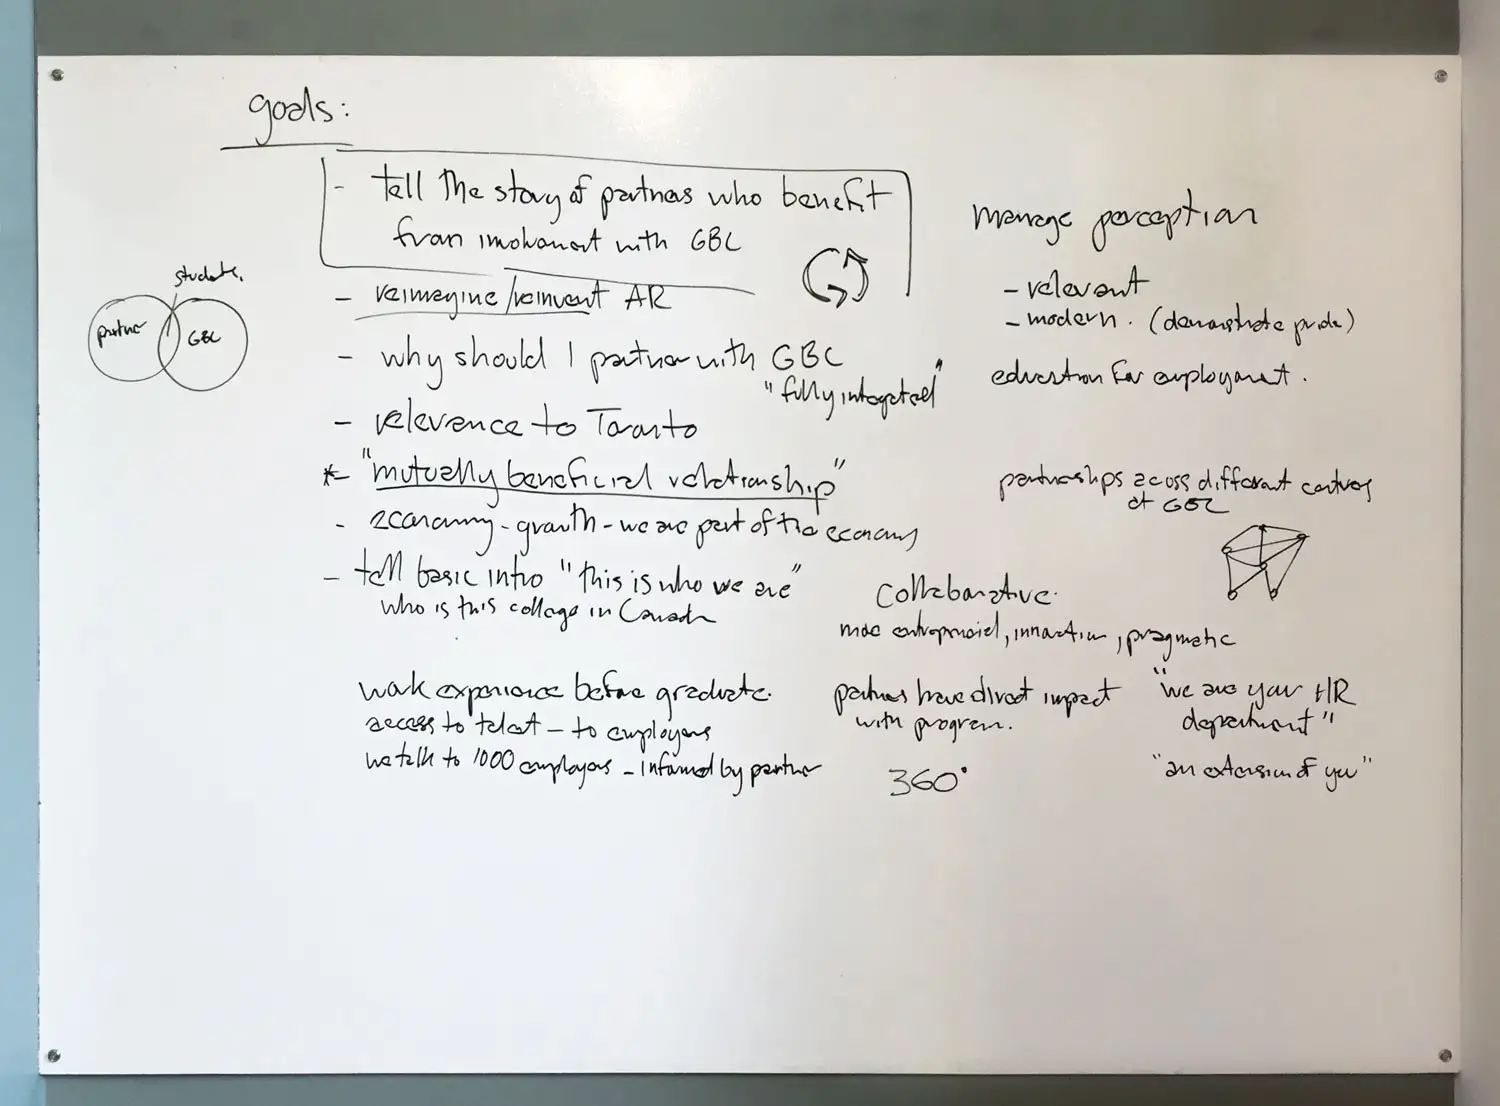 goals:
- tell the story of partners who benefit
from involvement with GBC
- reimagine/reinvent AR
- why should I partner with GBC
"fully integrated"
- relevence to Toronto
*- "mutually beneficial relationship"
- economy - growth - we are part of the economy
- tell basic intro "this is who we are"
who is this college in Canada
students.
partner
GBC
manage perception
- relevant
- modern. (demonstrate pride)
education for employment.
partnerships across different centres
at GBC
Collaborative.
more entreprenial, innovation, pragmatic
work experience before graduate.
access to talent - to employers
we talk to 1000 employers - informed by partner
partners have direct impact
with program.
360°
"we are your HR
department"
"an extension of you"